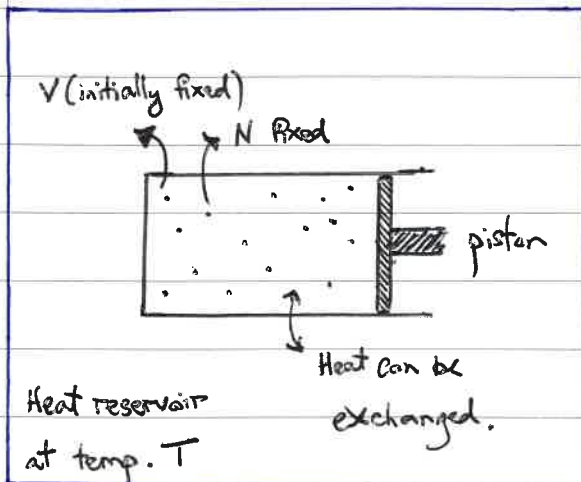 V (initially fixed)
N fixed
piston
Heat can be
exchanged.
Heat reservoir
at temp. T